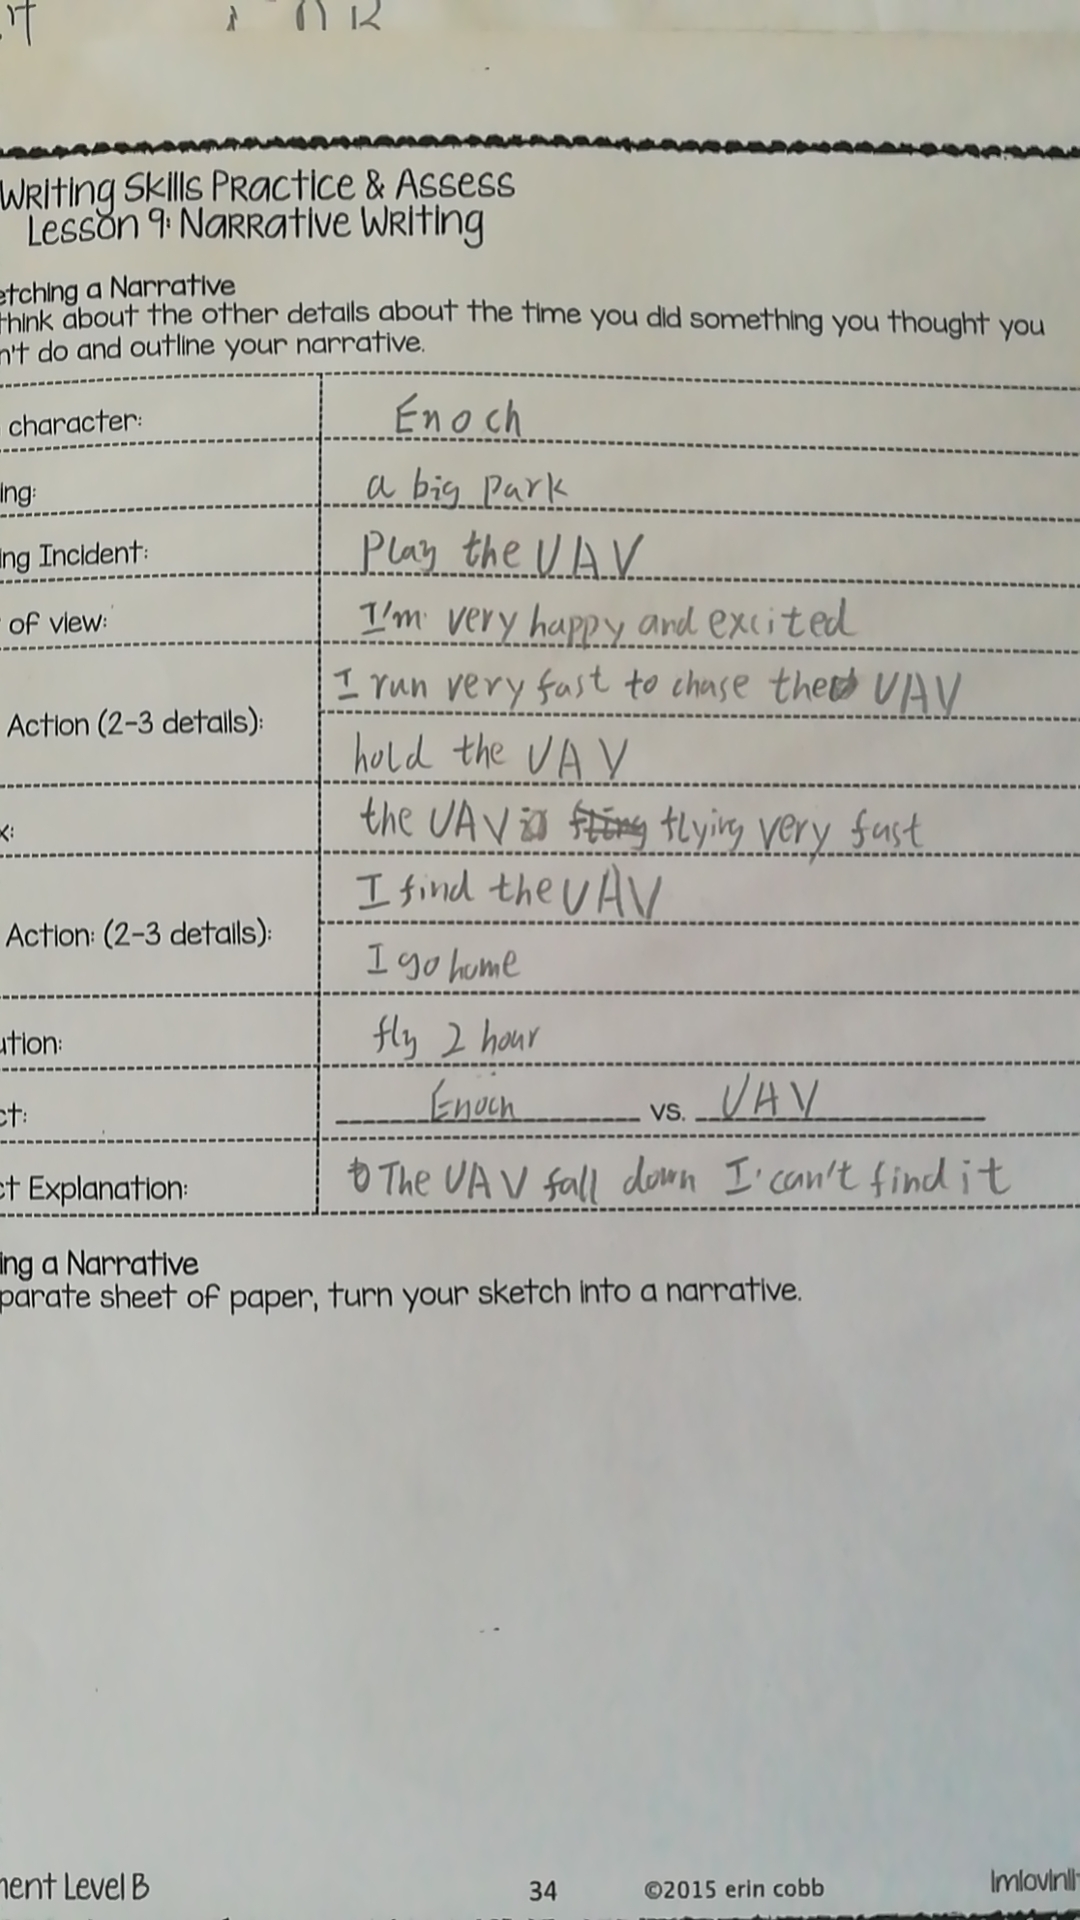 Writing Skills Practice & Assess
Lesson 9: Narrative Writing
etching a Narrative
think about the other details about the time you did something you thought you
n't do and outline your narrative.
character: Enoch
ing: a big park
ing Incident: Play the UAV
of view: I'm very happy and excited
I run very fast to chase the UAV
Action (2-3 details):
hold the UAV
x: the UAV is flying very fast
I find the UAV
Action: (2-3 details):
I go home
ution: fly 2 hour
ct: Enoch vs. UAV
ct Explanation: The UAV fall down I can't find it
ing a Narrative
parate sheet of paper, turn your sketch into a narrative.
ment Level B 34 ©2015 erin cobb Imlovinlit